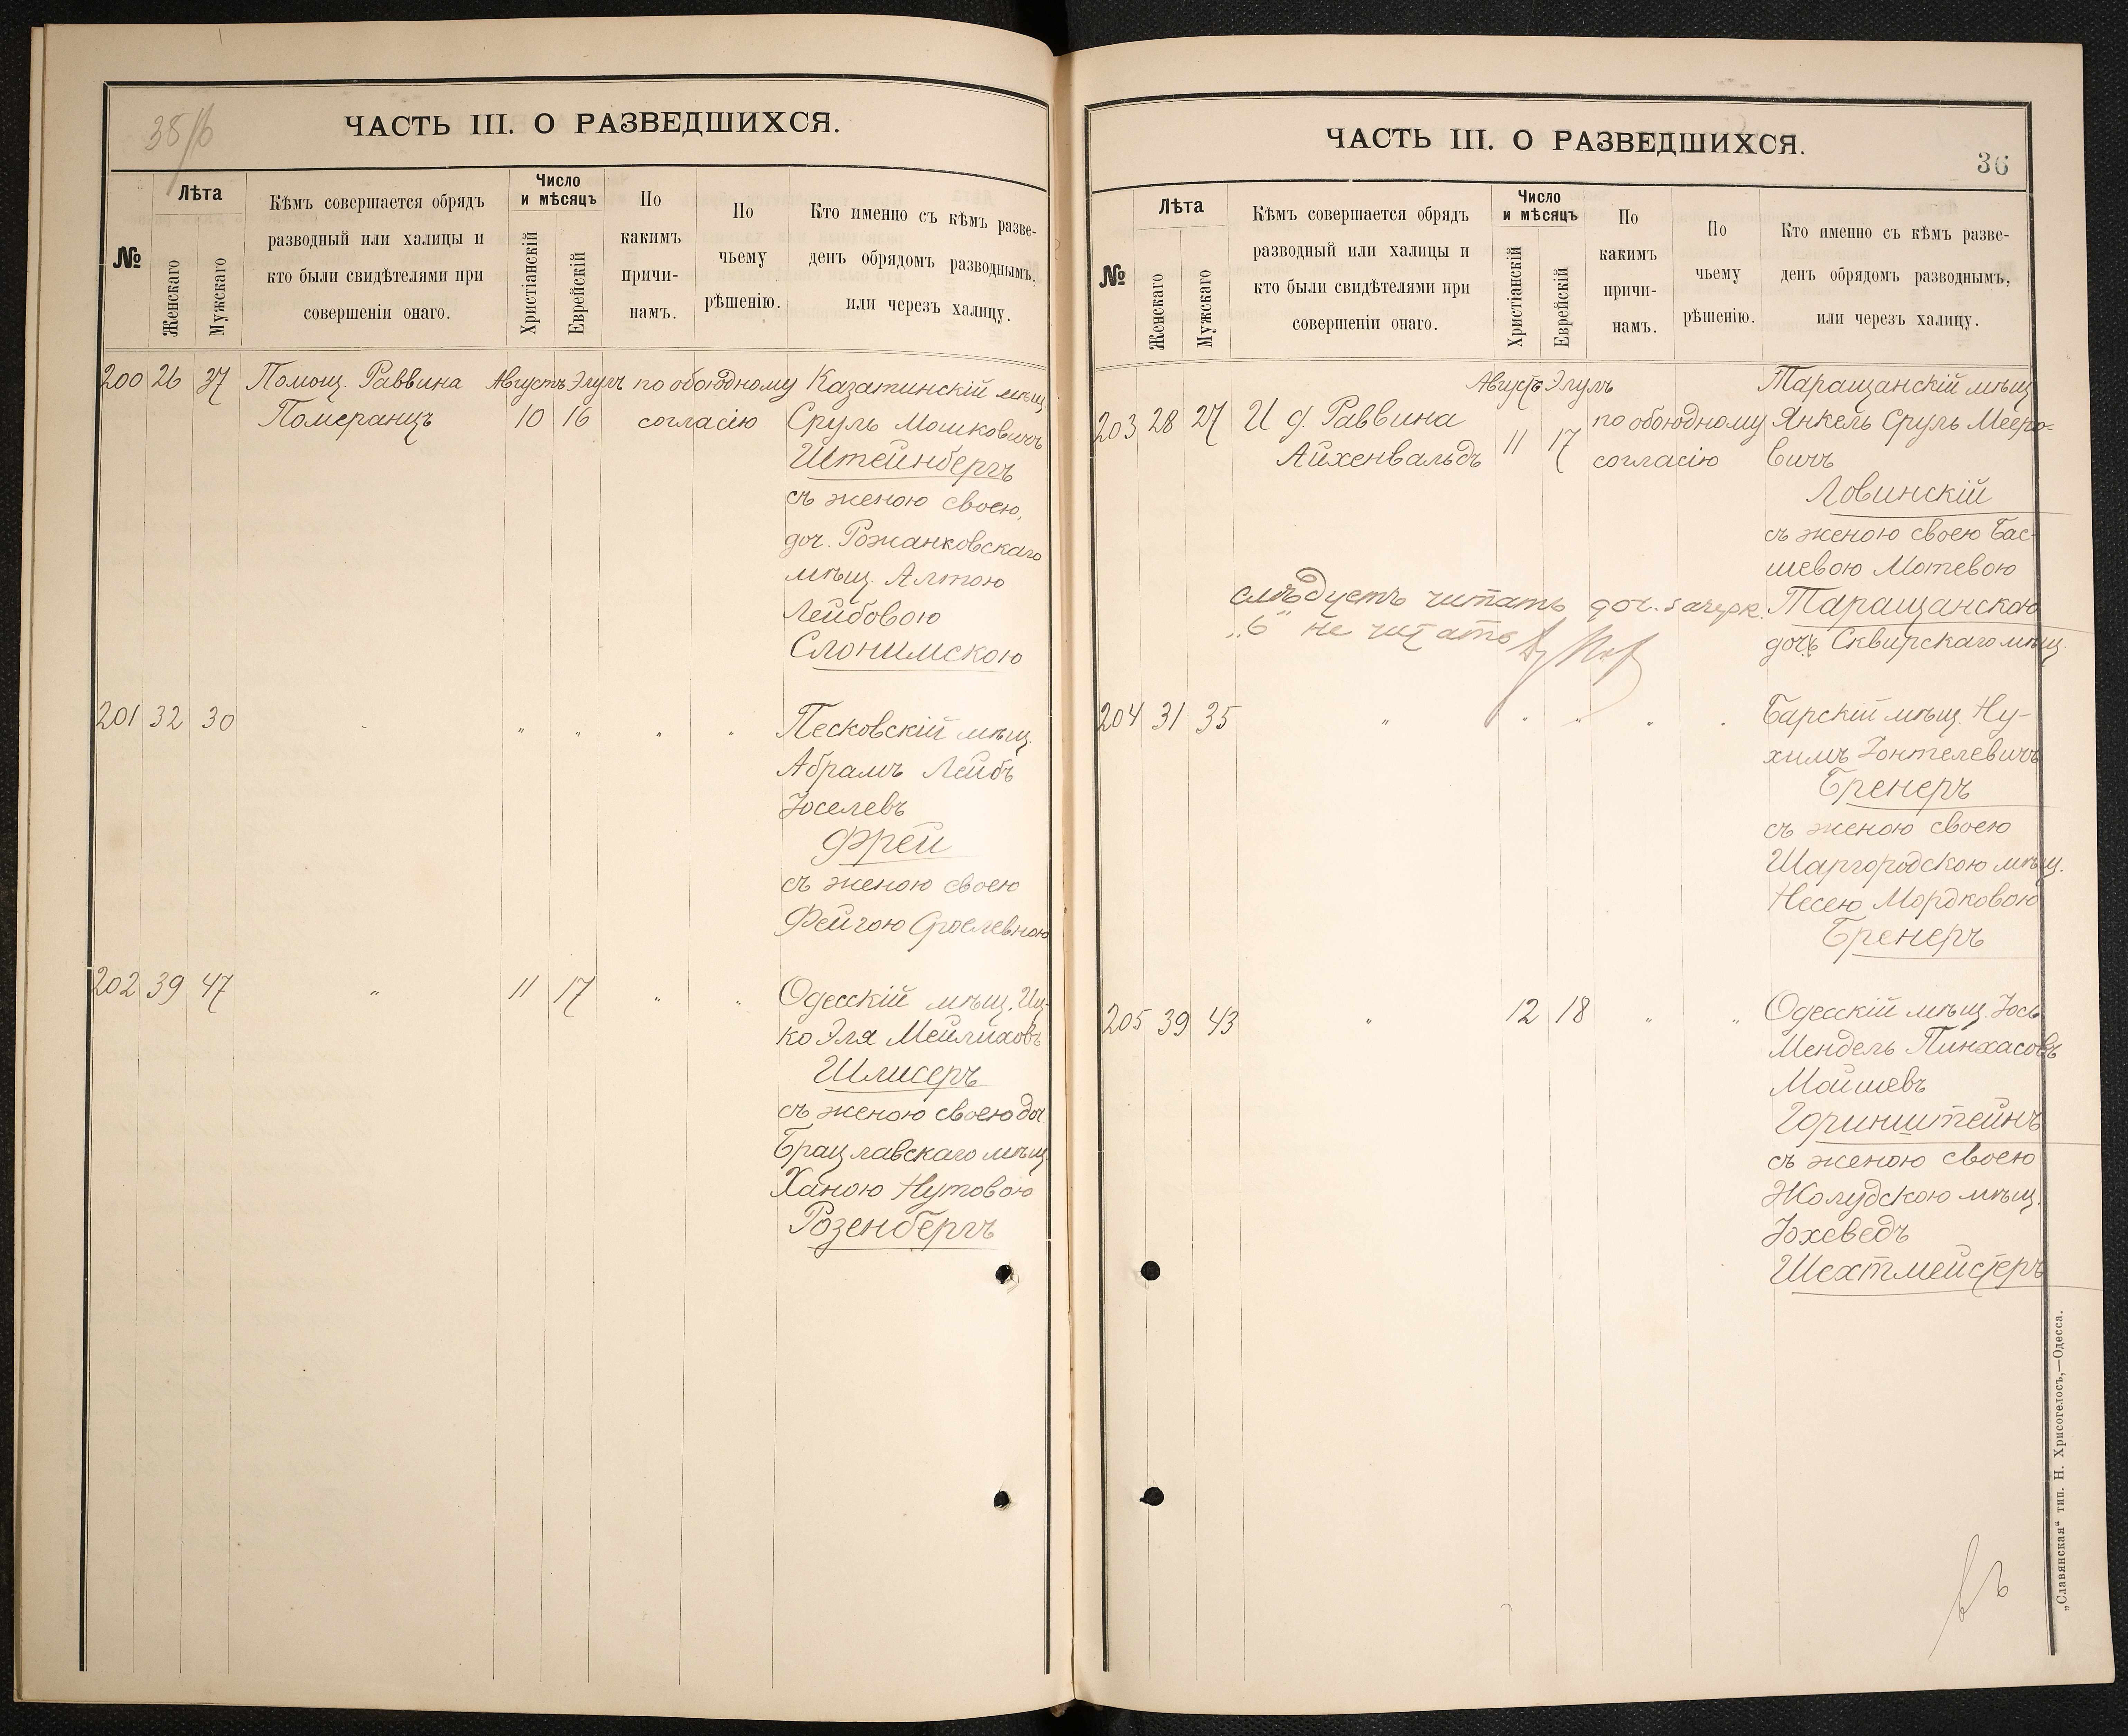 35/б
ЧАСТЬ III. О РАЗВЕДШИХСЯ.
№
Лѣта
Женскаго
Мужскаго
Кѣмъ совершается обрядъ
разводный или халицы и
кто были свидѣтелями при
совершеніи онаго.
Число
и мѣсяцъ
Христіанскій
Еврейскій
По
какимъ
причи-
намъ.
По
чьему
рѣшенію.
Кто именно съ кѣмъ разве-
денъ обрядомъ разводнымъ,
или черезъ халицу.
200 26 37 Помощ. Раввина Августъ Элулъ по обоюдному Казатинскій мѣщ
Померанцъ 10 16 согласію Сруль Мошковичъ
Штейнбергъ
съ женою своею,
доч. Рожанковскаго
мѣщ. Алтою
Лейбовою
Слонимскою
201 32 30 " " " " Песковскій мѣщ.
Абрамъ Лейбъ
Іоселевъ
Фрей
съ женою своею
Фейгою Сроелевною
202 39 47 " 11 17 " " Одесскій мѣщ. Иц-
ко Эля Мейлиховъ
Шлисеръ
съ женою своею доч.
Брацлавскаго мѣщ
Ханою Нутовою
Розенбергъ
ЧАСТЬ III. О РАЗВЕДШИХСЯ.
36
№
Лѣта
Женскаго
Мужскаго
Кѣмъ совершается обрядъ
разводный или халицы и
кто были свидѣтелями при
совершеніи онаго.
Число
и мѣсяцъ
Христіанскій
Еврейскій
По
какимъ
причи-
намъ.
По
чьему
рѣшенію.
Кто именно съ кѣмъ разве-
денъ обрядомъ разводнымъ,
или черезъ халицу.
Августъ Элулъ Таращанскій мѣщ
203 28 27 И д. Раввина 11 17 по обоюдному Янкель Сруль Мееро-
Айхенвальдъ согласію вичъ
Ловинскій
съ женою своею Бас-
шевою Мотевою
слѣдуетъ читать доч. зачерк. Таращанскою
„ь" не читать дочь Сквирскаго мѣщ.
204 31 35 " " " " " Барскій мѣщ. Ну-
химъ Іонтелевичъ
Бренеръ
съ женою своею
Шаргородскою мѣщ.
Несею Мордковою
Бренеръ
205 39 43 " 12 18 " " Одесскій мѣщ. Іось
Мендель Пинхасовъ
Мойшевъ
Горинштейнъ
съ женою своею
Жолудскою мѣщ.
Іохеведъ
Шехтмейстеръ
„Славянская" тип. Н. Хрисогелосъ,—Одесса.